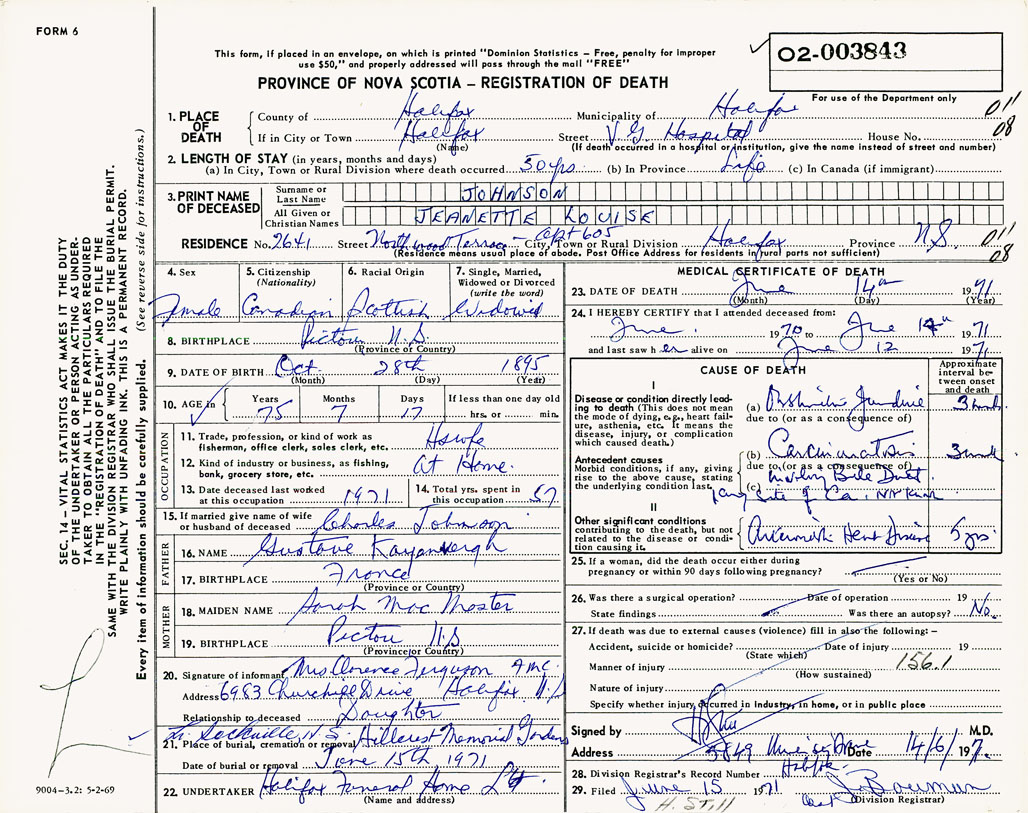 FORM 6
This form, if placed in an envelope, on which is printed "Dominion Statistics – Free, penalty for improper
use $50," and properly addressed will pass through the mail "FREE"
PROVINCE OF NOVA SCOTIA – REGISTRATION OF DEATH
02-003843
For use of the Department only
1. PLACE OF DEATH
County of Halifax Municipality of Halifax 011
If in City or Town Halifax Street V G Hospital House No. 08
(Name) (If death occurred in a hospital or institution, give the name instead of street and number)
2. LENGTH OF STAY (in years, months and days)
(a) In City, Town or Rural Division where death occurred 50 yrs. (b) In Province Life (c) In Canada (if immigrant)
3. PRINT NAME OF DECEASED
Surname or Last Name JOHNSON
All Given or Christian Names JEANETTE LOUISE
RESIDENCE No. 2641 Street Northwood Terrace – Apt 605 City, Town or Rural Division Halifax Province N.S. 011
(Residence means usual place of abode. Post Office Address for residents in rural parts not sufficient) 08
4. Sex Female
5. Citizenship (Nationality) Canadian
6. Racial Origin Scottish
7. Single, Married, Widowed or Divorced (write the word) Widowed
8. BIRTHPLACE Pictou N.S.
(Province or Country)
9. DATE OF BIRTH Oct 28th 1895
(Month) (Day) (Year)
10. AGE in Years 75 Months 7 Days 17 If less than one day old
hrs. or min.
OCCUPATION
11. Trade, profession, or kind of work as fisherman, office clerk, sales clerk, etc. Hswfe
12. Kind of industry or business, as fishing, bank, grocery store, etc. At Home.
13. Date deceased last worked at this occupation 1971
14. Total yrs. spent in this occupation 57
15. If married give name of wife or husband of deceased Charles Johnson
FATHER
16. NAME Gustave
17. BIRTHPLACE France
(Province or Country)
MOTHER
18. MAIDEN NAME Sarah Mac Master
19. BIRTHPLACE Pictou N.S
(Province or Country)
20. Signature of informant Mrs Clarence Ferguson
Address 6983 Churchill Drive Halifax N.S
Relationship to deceased Daughter
Sackville, N.S.
21. Place of burial, cremation or removal Hillcrest Memorial Gardens
Date of burial or removal June 15th, 1971
22. UNDERTAKER Halifax Funeral Home Ltd
(Name and address)
MEDICAL CERTIFICATE OF DEATH
23. DATE OF DEATH June 14th 1971
(Month) (Day) (Year)
24. I HEREBY CERTIFY that I attended deceased from:
June 1970 to June 14th 1971
and last saw her alive on June 12 1971
CAUSE OF DEATH
Approximate interval between onset and death
I
Disease or condition directly leading to death (This does not mean the mode of dying, e.g., heart failure, asthenia, etc. It means the disease, injury, or complication which caused death.)
(a) Obstructive Jaundice
due to (or as a consequence of)
Antecedent causes
Morbid conditions, if any, giving rise to the above cause, stating the underlying condition last.
(b) Carcinomatosis
due to (or as a consequence of)
involving Bile Duct
II
Other significant conditions
contributing to the death, but not related to the disease or condition causing it.
Heart Disease 5 yrs.
25. If a woman, did the death occur either during pregnancy or within 90 days following pregnancy?
(Yes or No)
26. Was there a surgical operation? Date of operation 19
State findings Was there an autopsy? No.
27. If death was due to external causes (violence) fill in also the following: –
Accident, suicide or homicide? Date of injury 19
(State which)
Manner of injury 156.1
(How sustained)
Nature of injury
Specify whether injury occurred in industry, in home, or in public place
Signed by M.D.
Address 5849 University Ave Date 14/6/ 197
Halifax
28. Division Registrar's Record Number
29. Filed June 15 1971 Bowman
(Division Registrar)
SEC. 14 – VITAL STATISTICS ACT MAKES IT THE DUTY
OF THE UNDERTAKER OR PERSON ACTING AS UNDER-
TAKER TO OBTAIN ALL THE PARTICULARS REQUIRED
IN THE "REGISTRATION OF DEATH" AND TO FILE THE
SAME WITH THE DIVISION REGISTRAR WHO SHALL ISSUE THE BURIAL PERMIT.
WRITE PLAINLY WITH UNFADING INK. THIS IS A PERMANENT RECORD.
Every item of information should be carefully supplied. (See reverse side for instructions.)
9004-3.2: 5-2-69